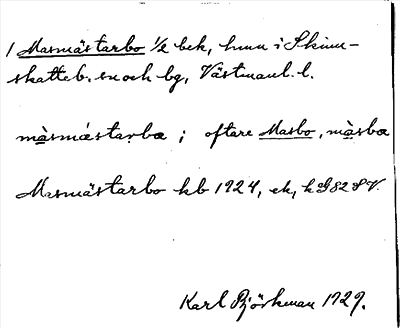 1 Masmästarbo 1/2 bek, hmn i Skinn-
skatteb. sn och bg, Västmanl. l.
màsmástarba ; oftare Masbo, màsba
Masmästarbo kb 1924, ek,
Karl Björkman 1929.